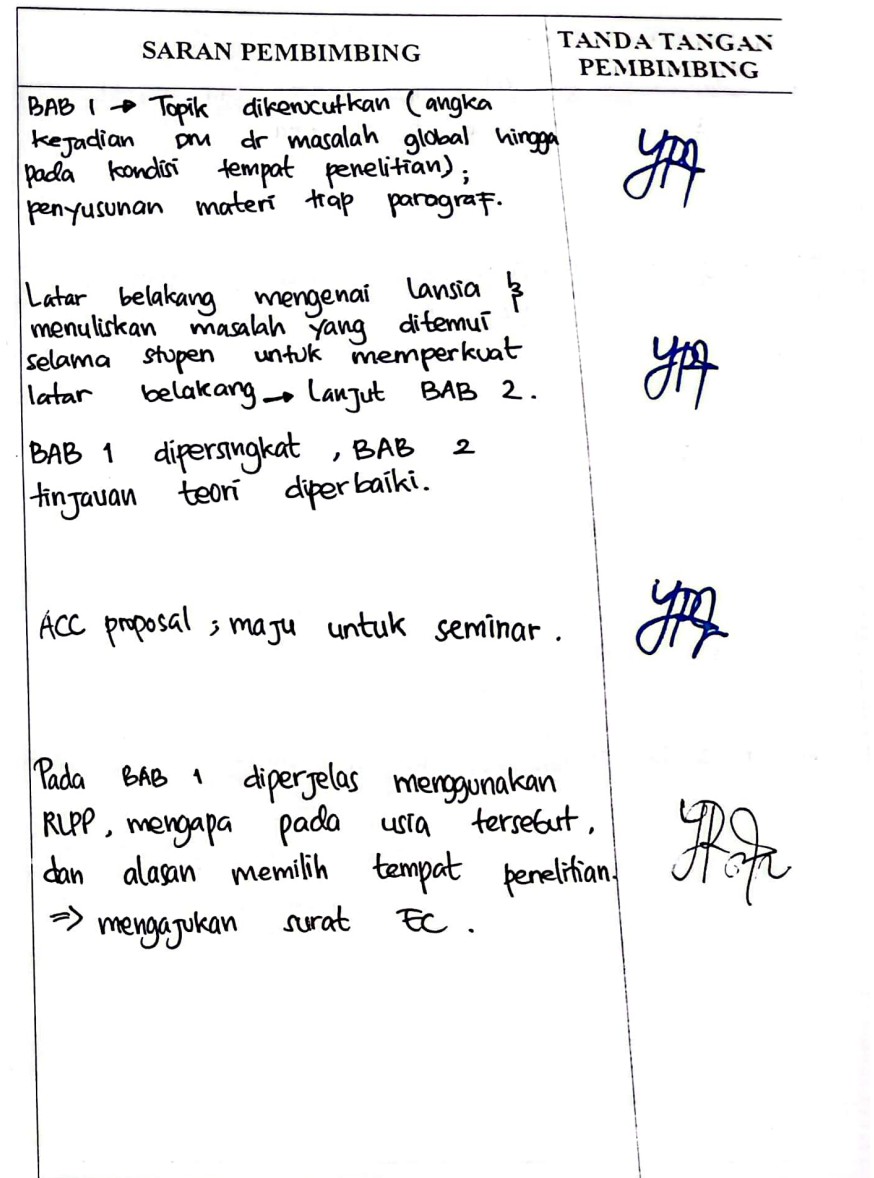 SARAN PEMBIMBING
TANDA TANGAN
PEMBIMBING
BAB 1 → Topik dikerucutkan (angka
kejadian DM dr masalah global hingga
pada kondisi tempat penelitian);
penyusunan materi tiap paragraf.
Latar belakang mengenai lansia &
menuliskan masalah yang ditemui
selama stupen untuk memperkuat
latar belakang → lanjut BAB 2.
BAB 1 dipersingkat, BAB 2
tinjauan teori diperbaiki.
ACC proposal ; maju untuk seminar.
Pada BAB 1 diperjelas menggunakan
RLPP, mengapa pada usia tersebut,
dan alasan memilih tempat penelitian.
⇒ mengajukan surat EC.